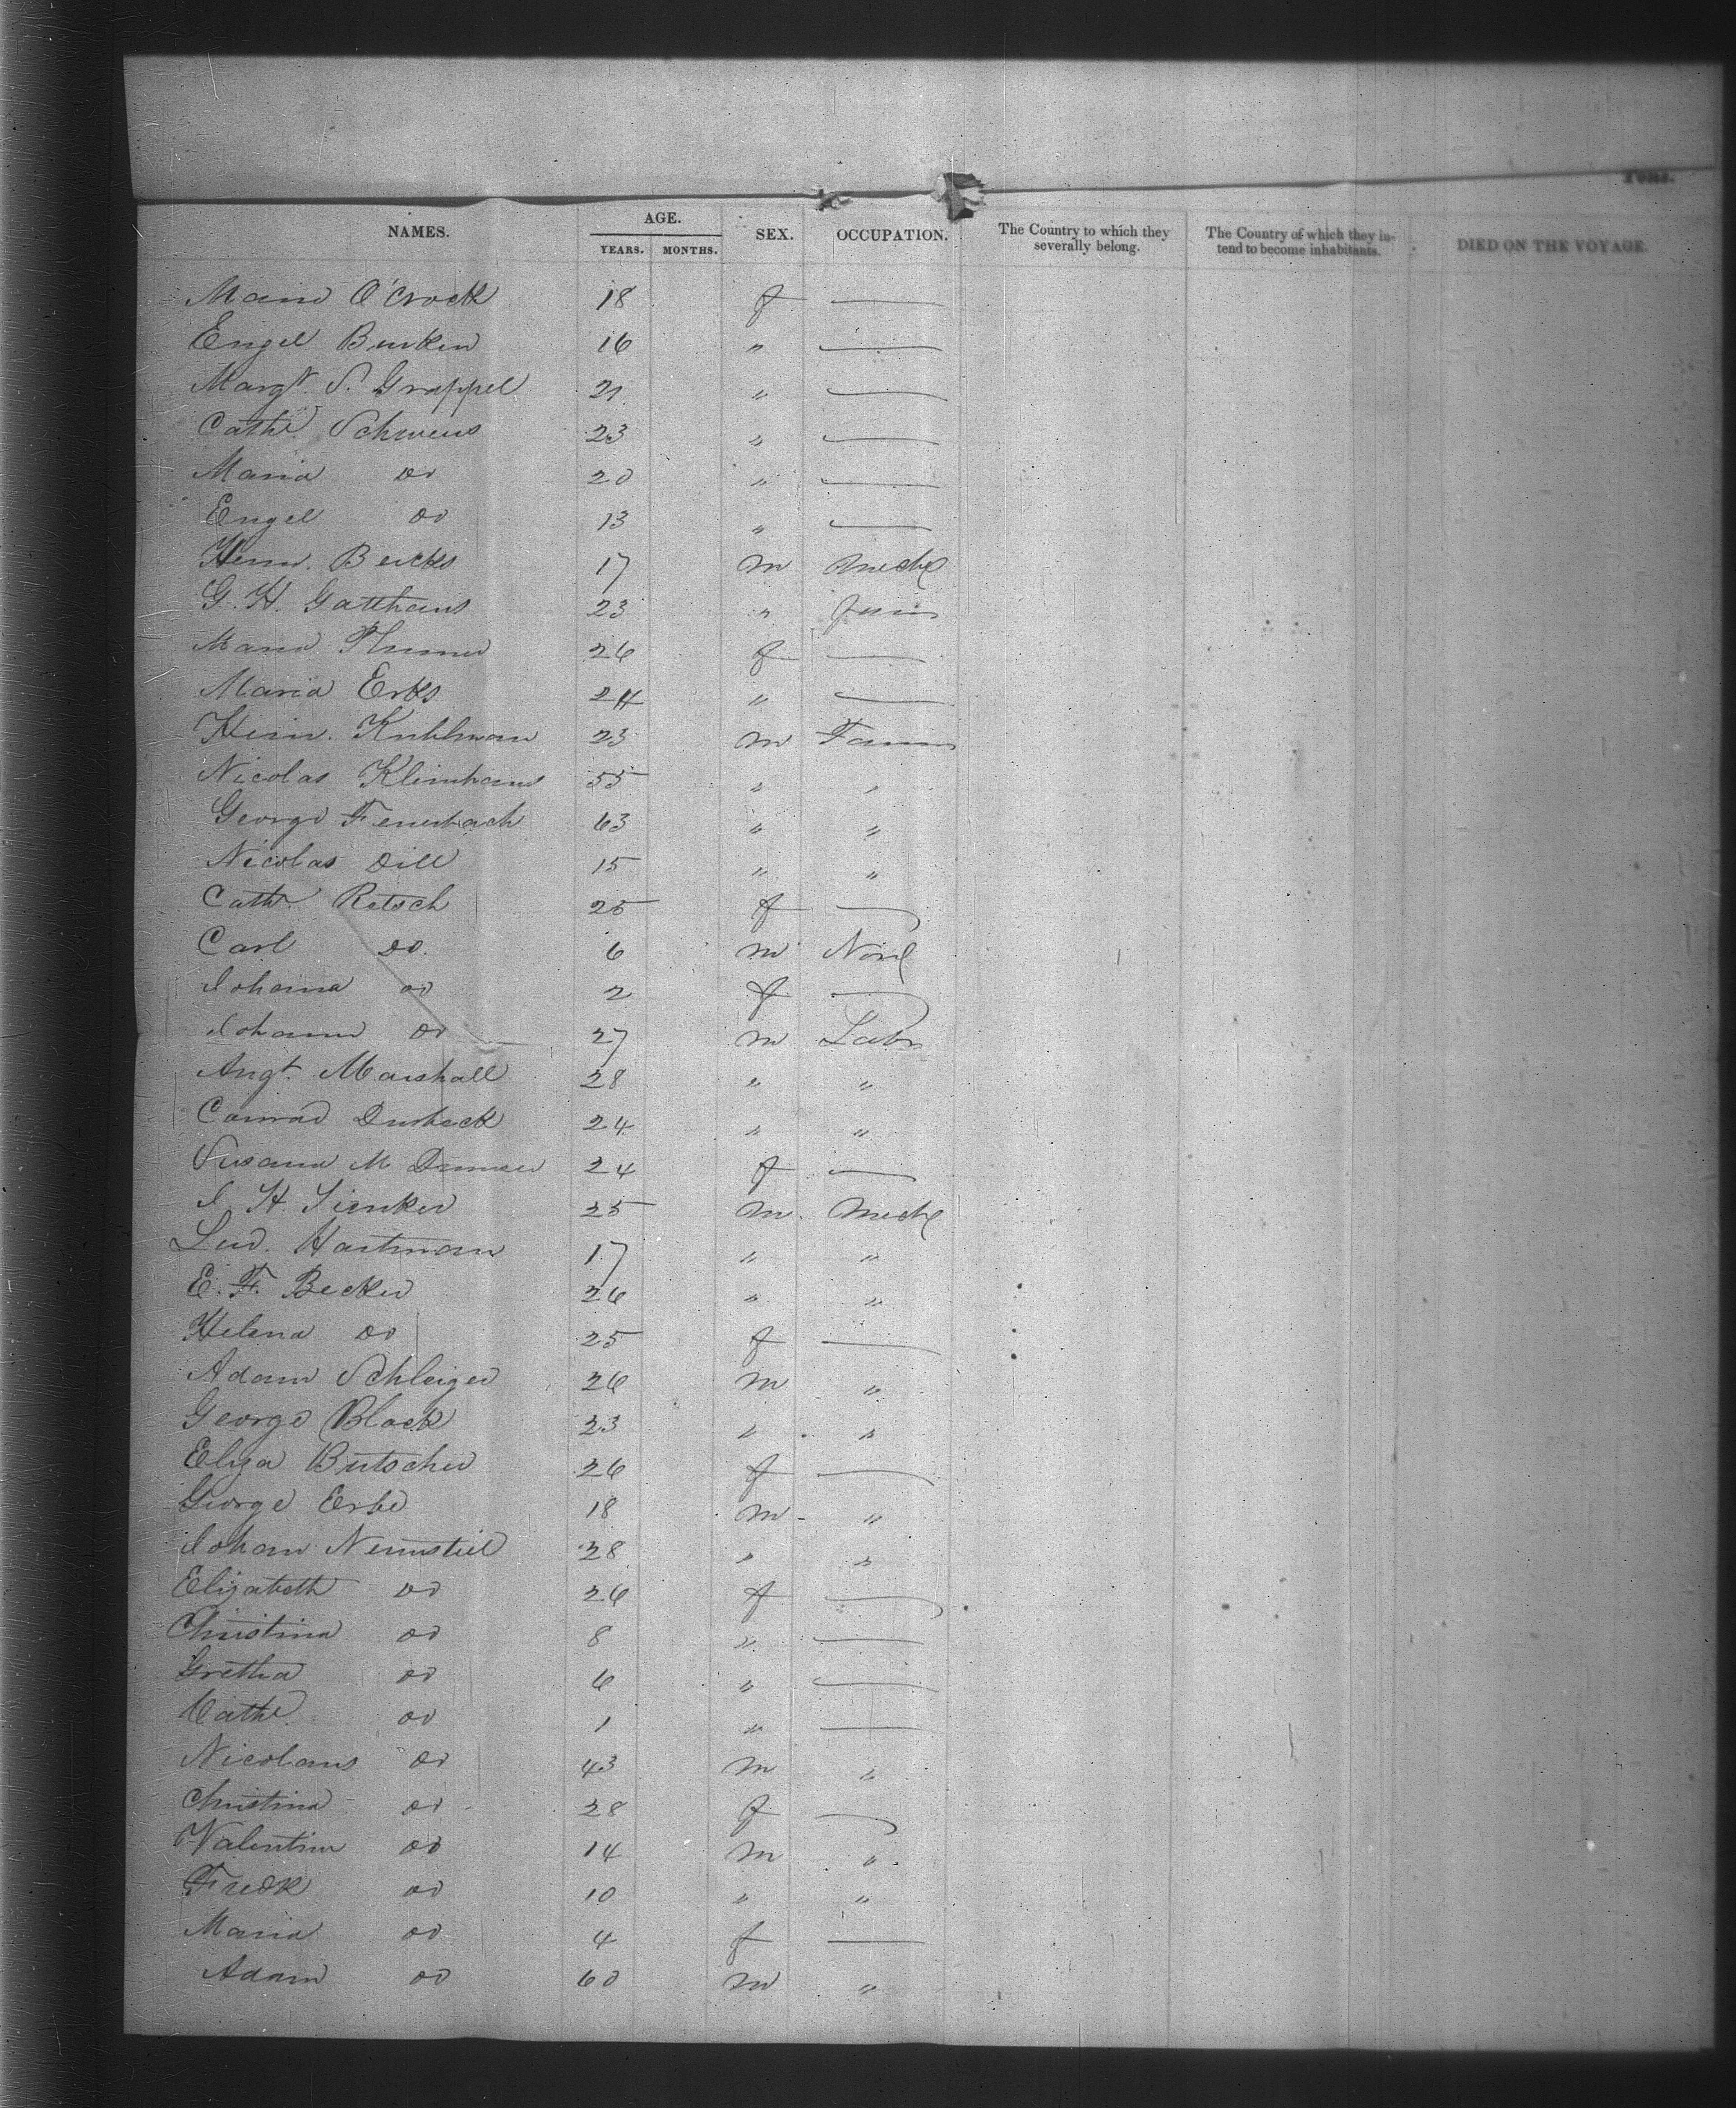 Tons.
NAMES. AGE. SEX. OCCUPATION. The Country to which they severally belong. The Country of which they intend to become inhabitants. DIED ON THE VOYAGE.
YEARS. MONTHS.
Maria O'Crock 18 f —
Engel Burken 16 " —
Margt. S. Grappel 21 " —
Cathe Schwens 23 " —
Maria do 20 " —
Engel do 13 " —
Henr. Beicks 17 m Mech
G. H. Gatthaus 23 "
Maria 26 f —
Maria Erks 24 " —
Hein. Kuhlman 23 m Farm
Nicolas Kleinhans 55 " "
George Feuerbach 63 " "
Nicolas Dill 15 " "
Cathe. Retsch 25 f —
Carl do. 6 m None
Johanna do 2 f —
Johann do 27 m Labr
Augt. Marshall 28 " "
Conrad Durbeck 24 " "
Susana M 24 f —
J. H. Sienker 25 m. Mech
Lud. Hartman 17 " "
E. F. Becker 26 " "
Helena do 25 f —
Adam Schleiger 26 m "
George Black 23 " "
Eliza Butscher 26 f —
George Erbe 18 m "
Johan Neumstiel 28 " "
Elizabeth do 26 f —
Christina do 8 " —
Gretha do 6 " —
Cathe. do 1 " —
Nicolaus do 43 m "
Christina do 28 f —
Valentin do 14 m "
Fredk do 10 " "
Maria do 4 f —
Adam do 60 m "